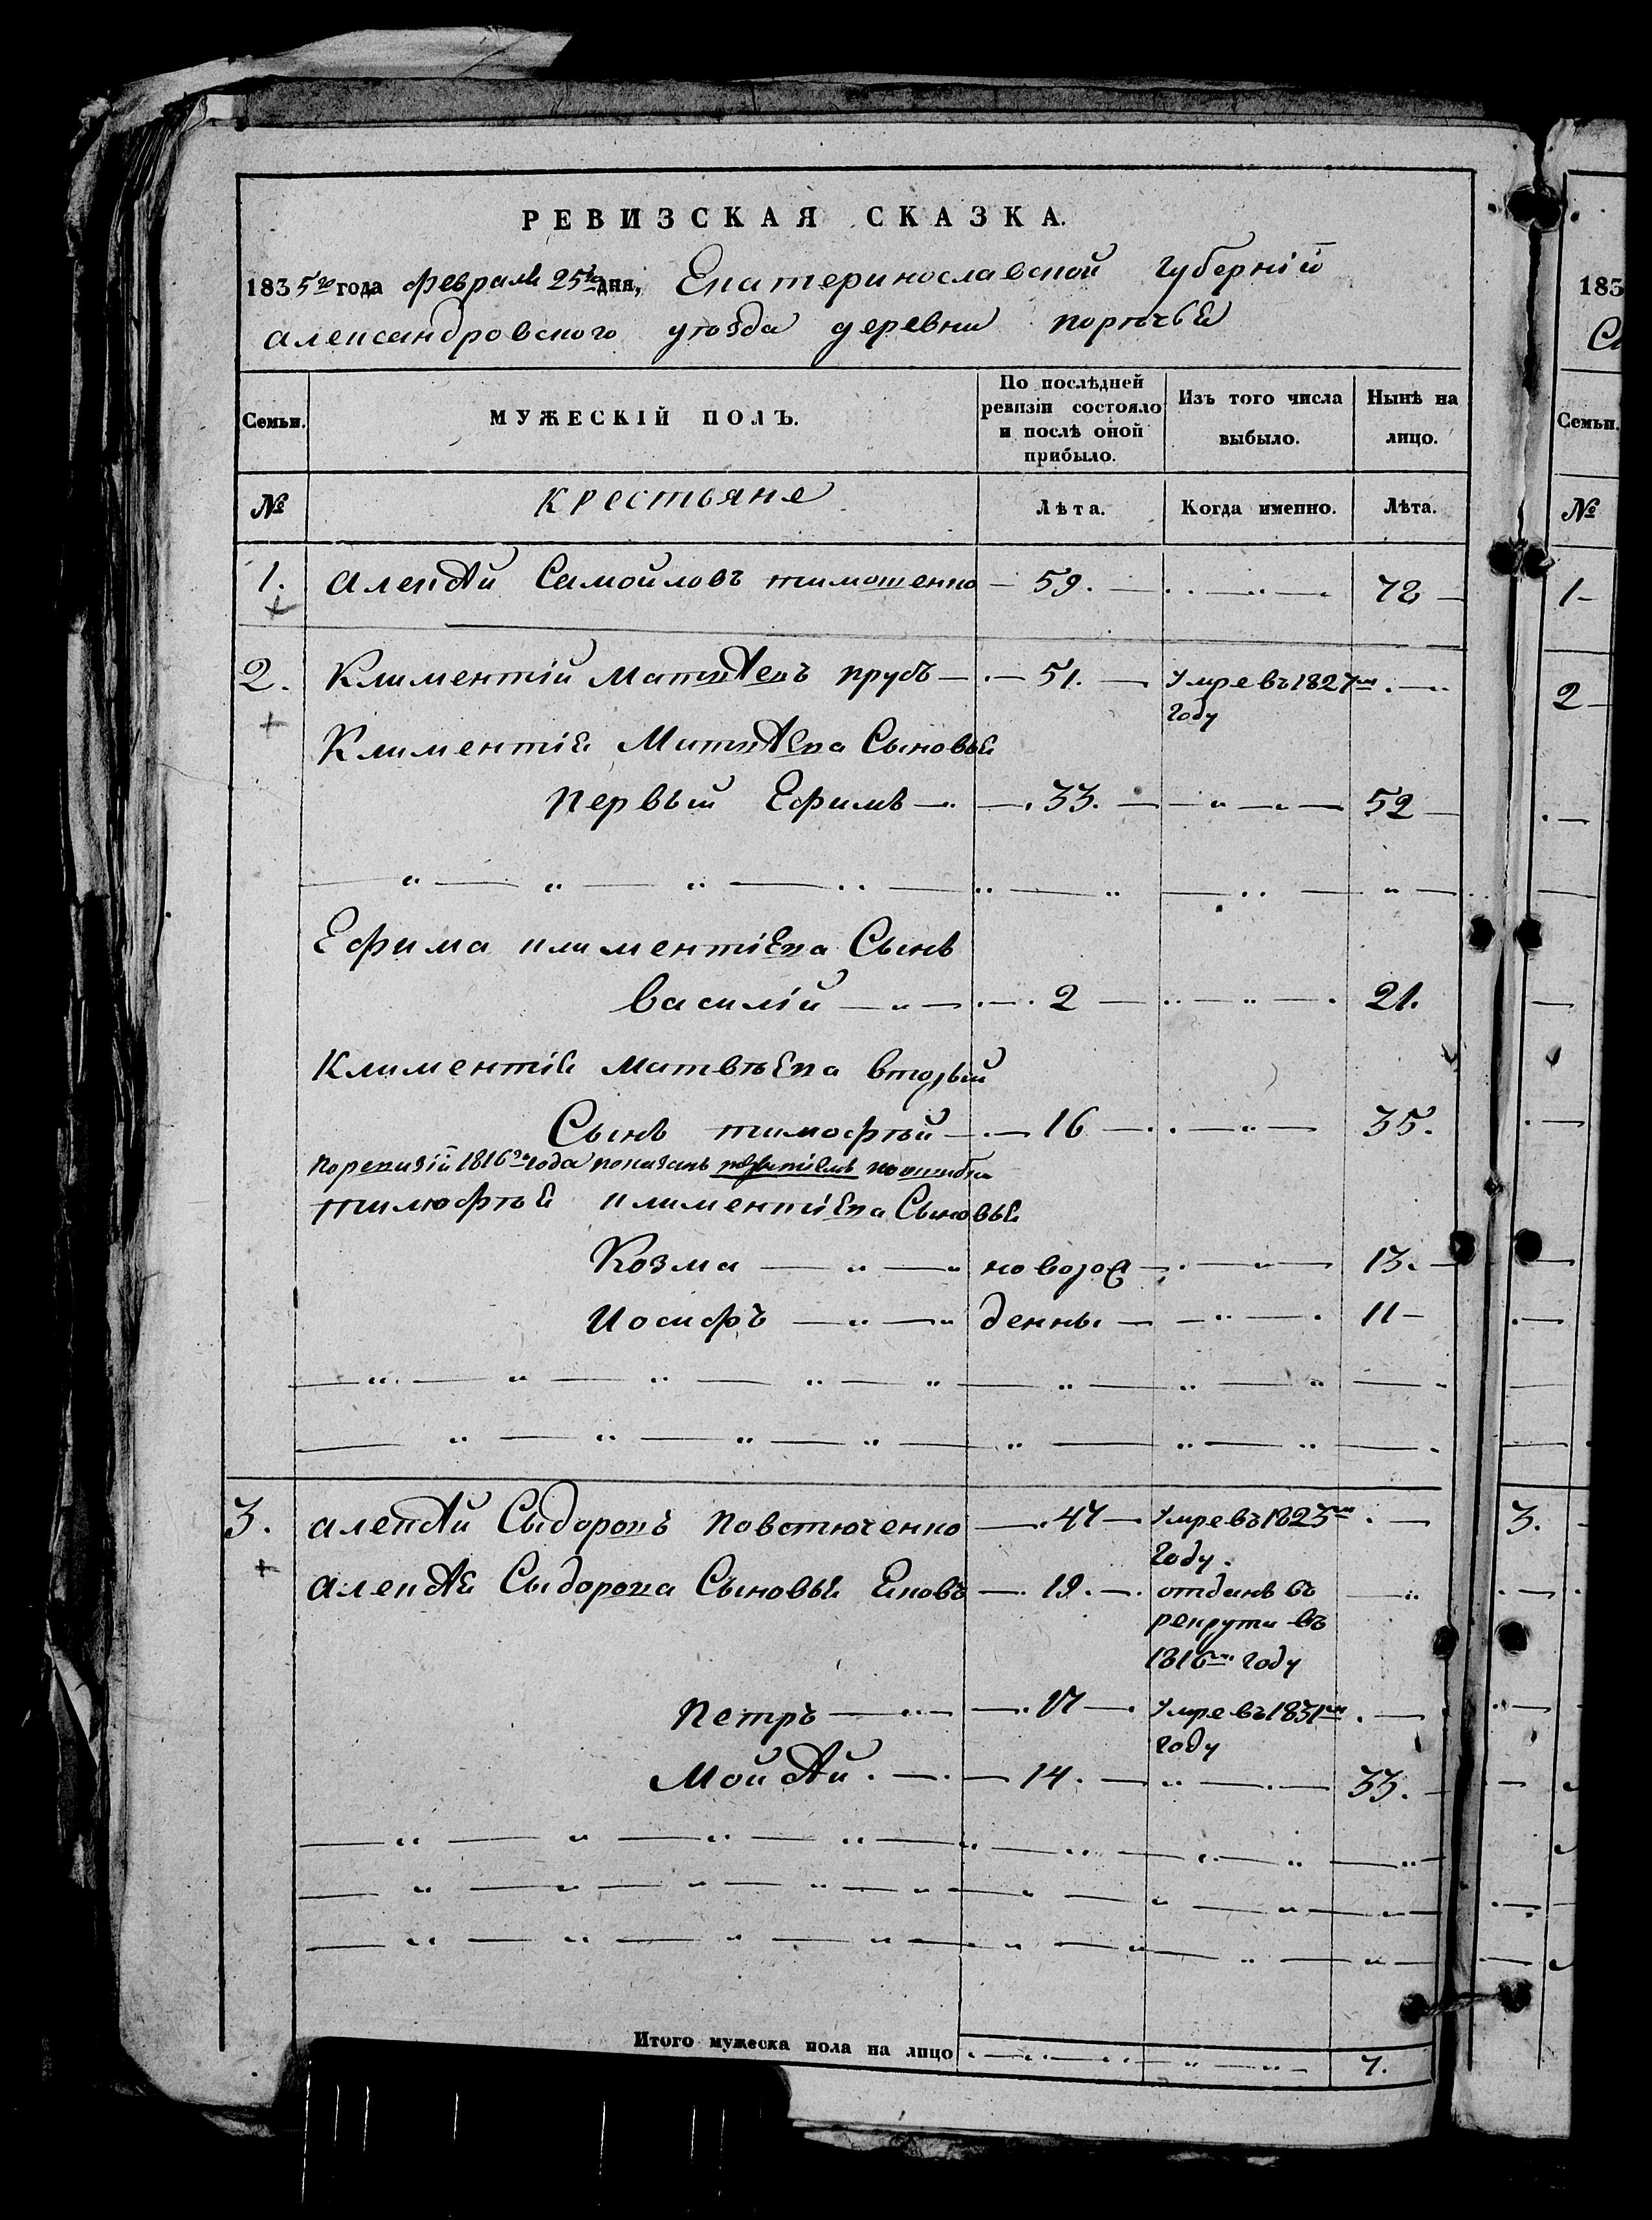 РЕВИЗСКАЯ СКАЗКА.
1835го года февраля 25го дня, Екатеринославской губерніи
александровского уѣзда деревни порѣчья
Семьи. МУЖЕСКІЙ ПОЛЪ. По послѣдней ревизіи состояло и послѣ оной прибыло. Изъ того числа выбыло. Нынѣ на лицо.
№ крестьяне Лѣта. Когда именно. Лѣта.
1. алексѣй Самойловъ тимошенко 59. 78
2. Климентій Матвѣевъ прубъ 51. Умре въ 1827м году
Климентія Матвѣева Сыновья
первый Ефимъ 33. 52
Ефима климентіева Сынъ
василій 2 21.
Климентія матвѣева вторый
Сынъ тимофѣй 16 35.
по ревизіи 1816го года показанъ по ошибки
тимофѣя климентіева Сыновья
Козма новорож 13.
Иосифъ денны 11
3. алексѣй Сыдоровъ повстюченко 47 Умре въ 1823м году.
алексѣя Сыдорова Сыновья Яковъ 19. отданъ въ рекруты въ 1816м году
петръ 17 Умре въ 1831м году
Мойсѣй 14. 33.
Итого мужеска пола на лицо 7.
183
Семьи.
№
1
2
3.